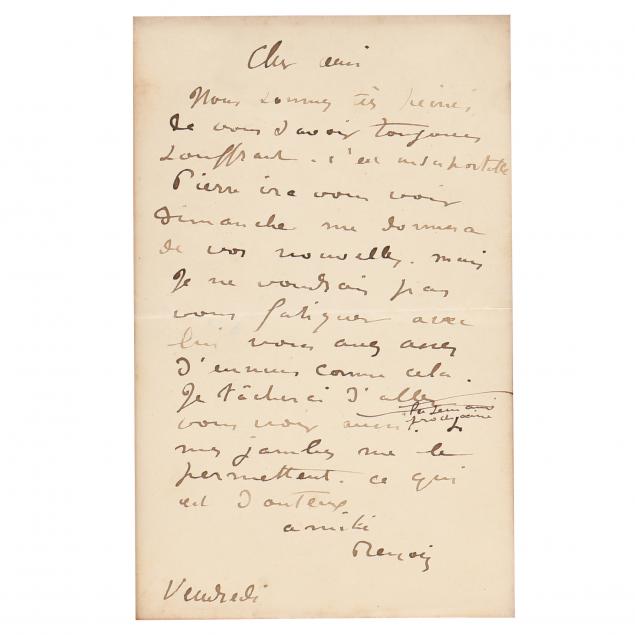 Cher ami
Nous sommes très peinés
de vous savoir toujours
souffrant. c'est insuportable
Pierre ira vous voir
Dimanche me donnera
de vos nouvelles. mais
Je ne voudrais pas
vous fatiguer avec
lui vous avez assez
d'ennuis comme cela.
Je tâcherai d'aller
la semaine
prochaine
vous voir aussi. si
mes jambes me le
permettent. ce qui
est douteux
amitié
Renoir
Vendredi